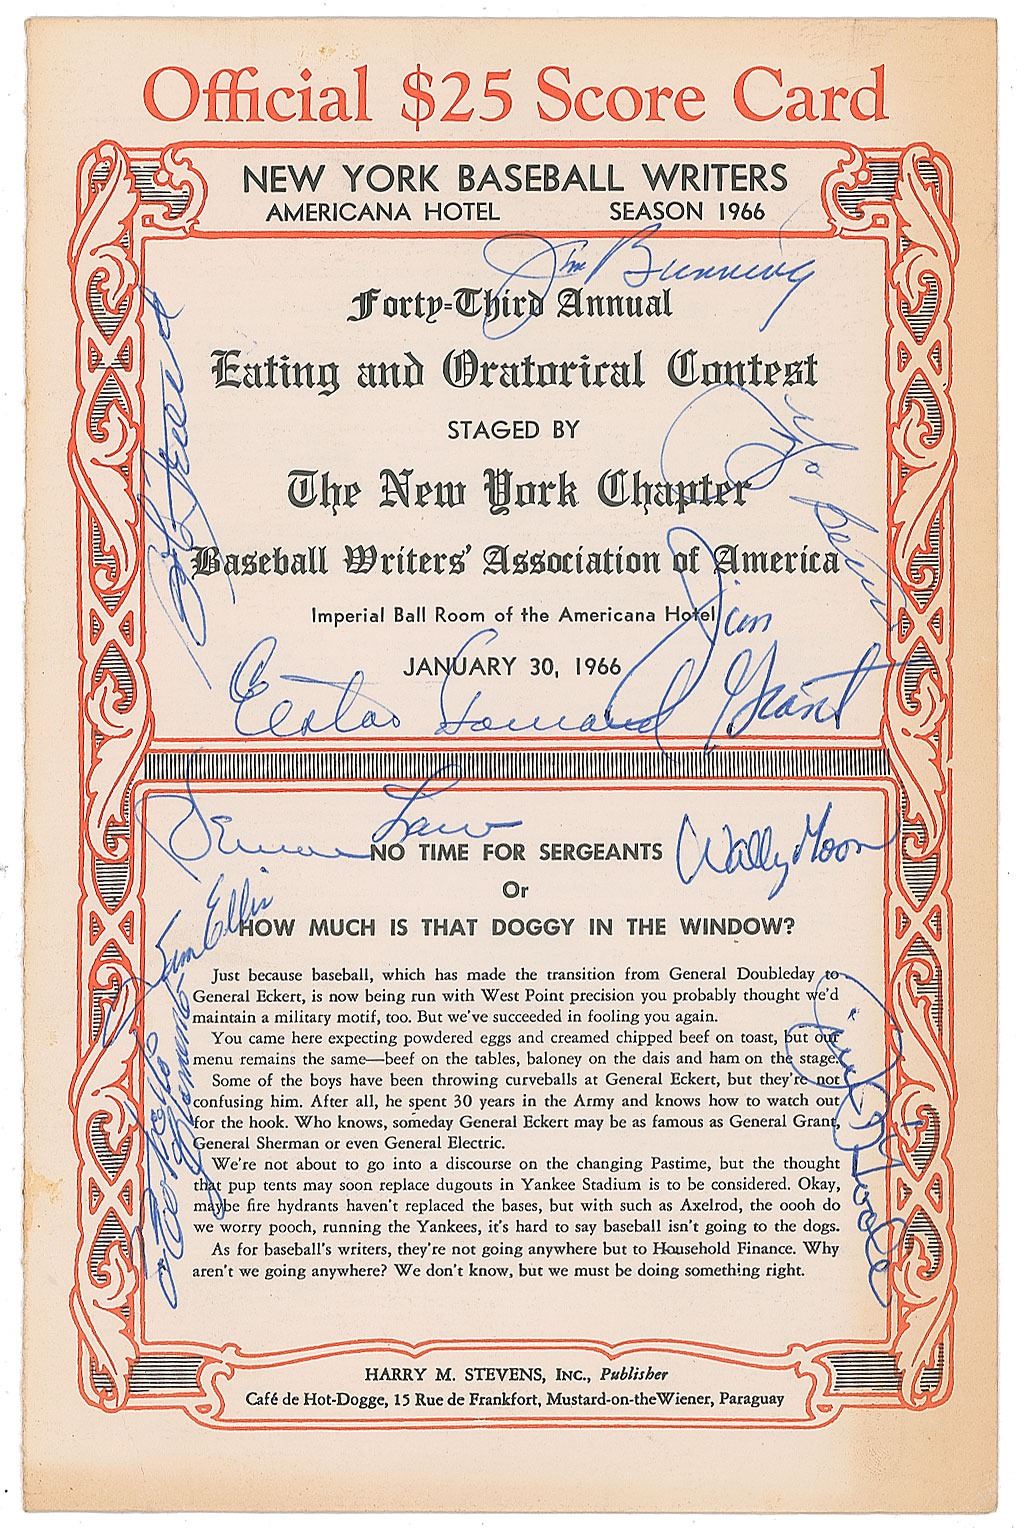 Official $25 Score Card
NEW YORK BASEBALL WRITERS
AMERICANA HOTEL SEASON 1966
Jim Bunning
Forty-Third Annual
Eating and Oratorical Contest
STAGED BY
The New York Chapter
Baseball Writers' Association of America
Imperial Ball Room of the Americana Hotel
Jim
JANUARY 30, 1966
Grant
Elston Howard
Vernon Law
Wally Moon
NO TIME FOR SERGEANTS
Or
Sam Ellis
HOW MUCH IS THAT DOGGY IN THE WINDOW?
Just because baseball, which has made the transition from General Doubleday to
General Eckert, is now being run with West Point precision you probably thought we'd
maintain a military motif, too. But we've succeeded in fooling you again.
You came here expecting powdered eggs and creamed chipped beef on toast, but our
menu remains the same—beef on the tables, baloney on the dais and ham on the stage.
Some of the boys have been throwing curveballs at General Eckert, but they're not
confusing him. After all, he spent 30 years in the Army and knows how to watch out
for the hook. Who knows, someday General Eckert may be as famous as General Grant,
General Sherman or even General Electric.
We're not about to go into a discourse on the changing Pastime, but the thought
that pup tents may soon replace dugouts in Yankee Stadium is to be considered. Okay,
maybe fire hydrants haven't replaced the bases, but with such as Axelrod, the oooh do
we worry pooch, running the Yankees, it's hard to say baseball isn't going to the dogs.
As for baseball's writers, they're not going anywhere but to Household Finance. Why
aren't we going anywhere? We don't know, but we must be doing something right.
HARRY M. STEVENS, INC., Publisher
Café de Hot-Dogge, 15 Rue de Frankfort, Mustard-on-the Wiener, Paraguay